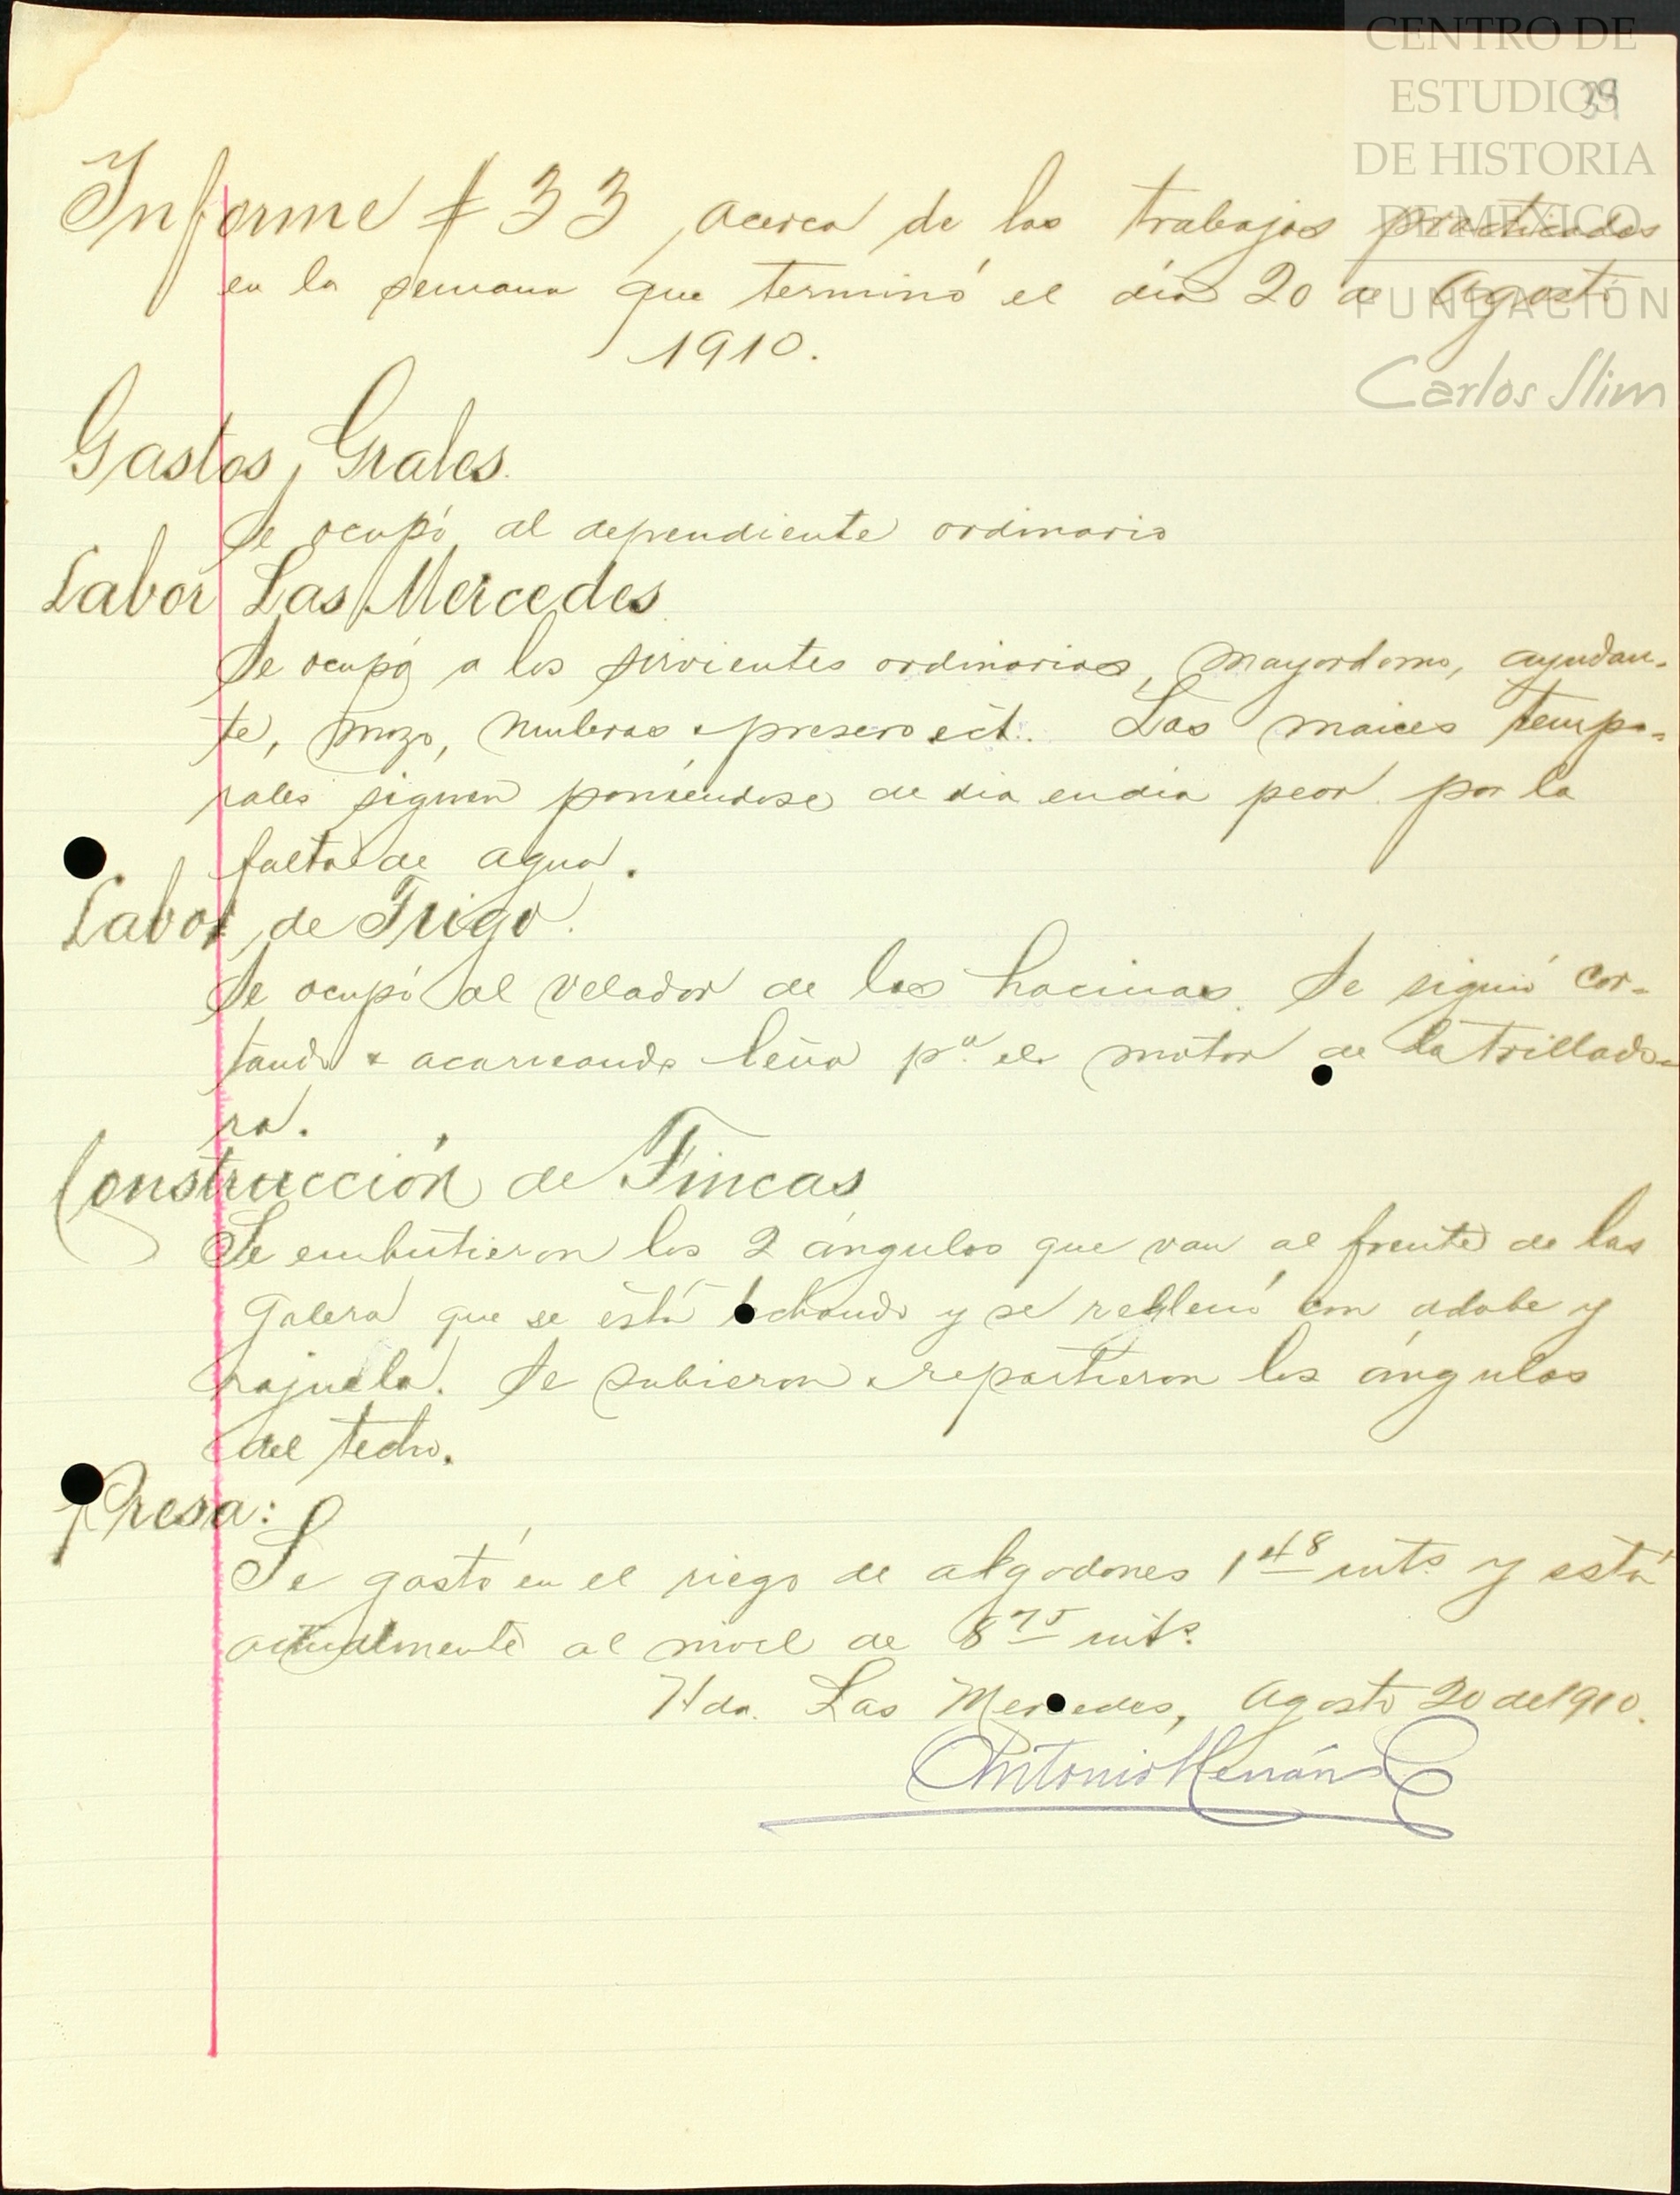 CENTRO DE
ESTUDIOS
DE HISTORIA
DE MÉXICO
FUNDACIÓN
Carlos Slim
39
Informe # 33 acerca de los trabajos practicados
en la semana que terminó el día 20 de Agosto
1910.
Gastos Grales.
Se ocupó al dependiente ordinario
Labor Las Mercedes
Se ocupó a los sirvientes ordinarios, mayordomo, ayudan-
te, mozo, presero ect. Los maices tempo-
rales siguen poniéndose de dia en dia peor por la
falta de agua.
Labor de Trigo.
Se ocupó al velador de las hacinas. Se siguió cor-
tando & acarreando leña pa. el motor de la trillado-
ra.
Construcción de Fincas
Se embutieron los 2 ángulos que van al frente de las
Galera que se está techando y se rellenó con adobe y
rajuela. Se subieron & repartieron los ángulos
del techo.
Presa:
Se gastó en el riego de algodones 1 48 mts. y está
actualmente al nivel de 8 75 mts.
Hda. Las Mercedes, Agosto 20 de 1910.
Antonio